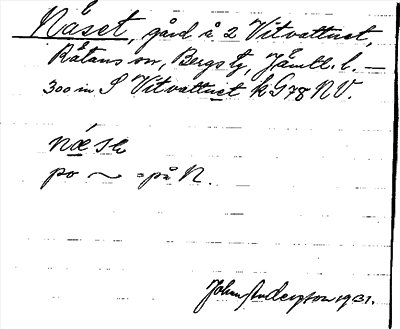 Nåset, gård å 2 Vitvattnet,
Råtans sn, Bergs tg, Jämtl. l. —
300 m S Vitvattnet k G 78 NV.
næse
po ~ = på N.
John Anderzon 1931.